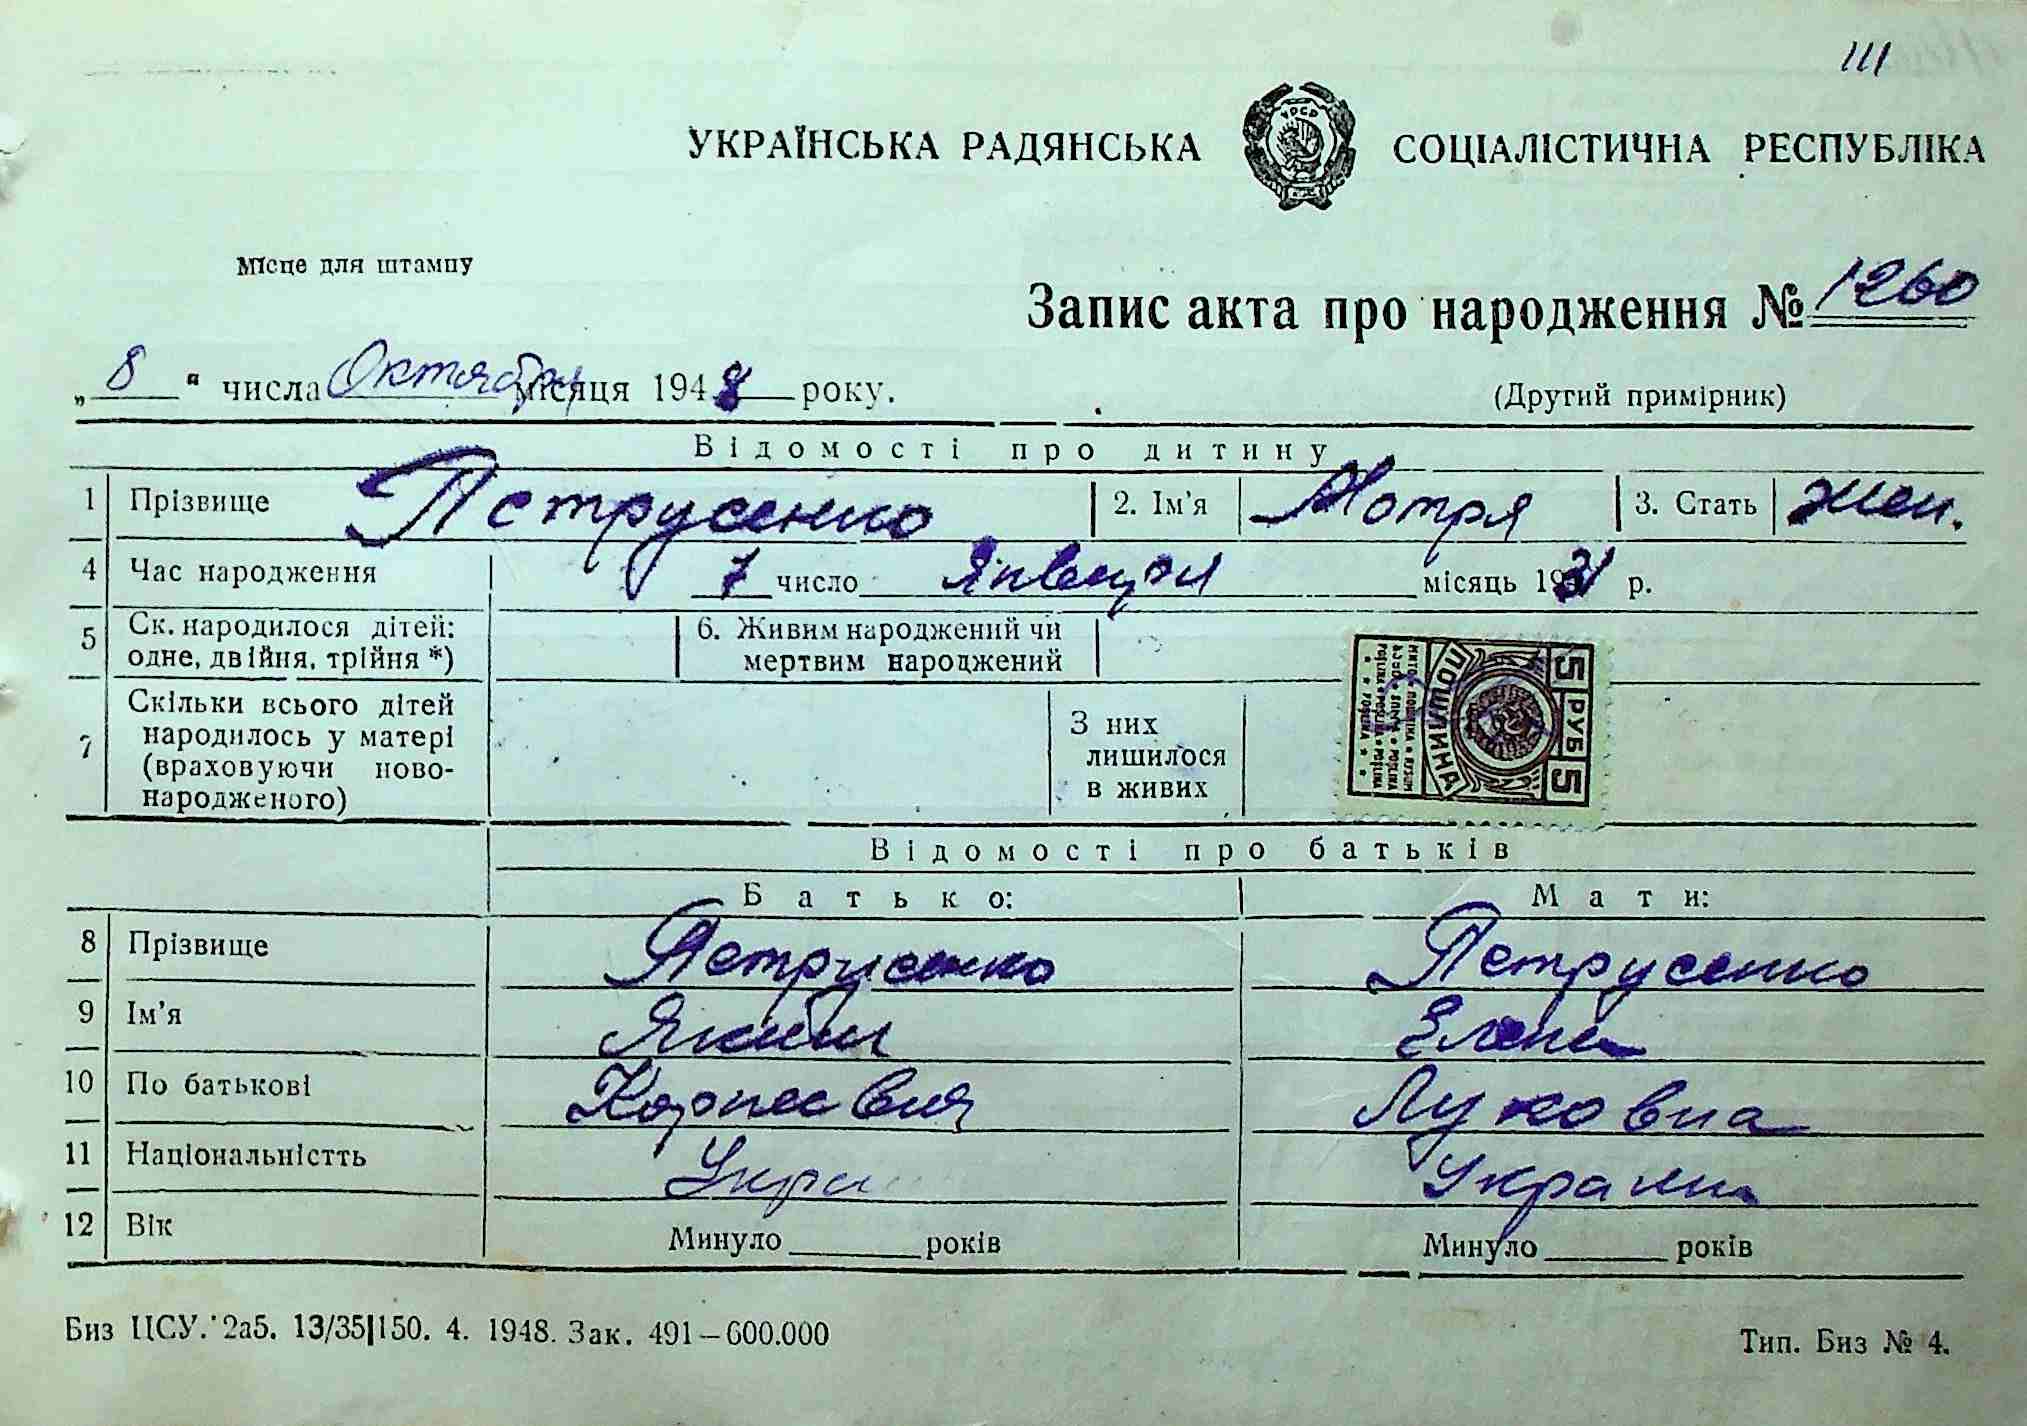 111
УКРАЇНСЬКА РАДЯНСЬКА СОЦІАЛІСТИЧНА РЕСПУБЛІКА
УРСР
Місце для штампу
Запис акта про народження № 1260
„ 8 “ числа Октября місяця 1948 року.
(Другий примірник)
Відомості про дитину
1 Прізвище Петрусенко 2. Ім'я Мотря 3. Стать Жен.
4 Час народження 7 число Января місяць 1931 р.
5 Ск. народилося дітей: одне, двійня, трійня *) 6. Живим народжений чи мертвим народжений
7 Скільки всього дітей народилось у матері (враховуючи ново-народженого) З них лишилося в живих
5 РУБ 5
ПОШЛИНА
Відомості про батьків
Батько: Мати:
8 Прізвище Петрусенко Петрусенко
9 Ім'я Яким Елена
10 По батькові Корнеевич Луковна
11 Національністть Укра Украин
12 Вік Минуло років Минуло років
Биз ЦСУ. 2аб. 13/35|150. 4. 1948. Зак. 491—600.000
Тип. Биз № 4.